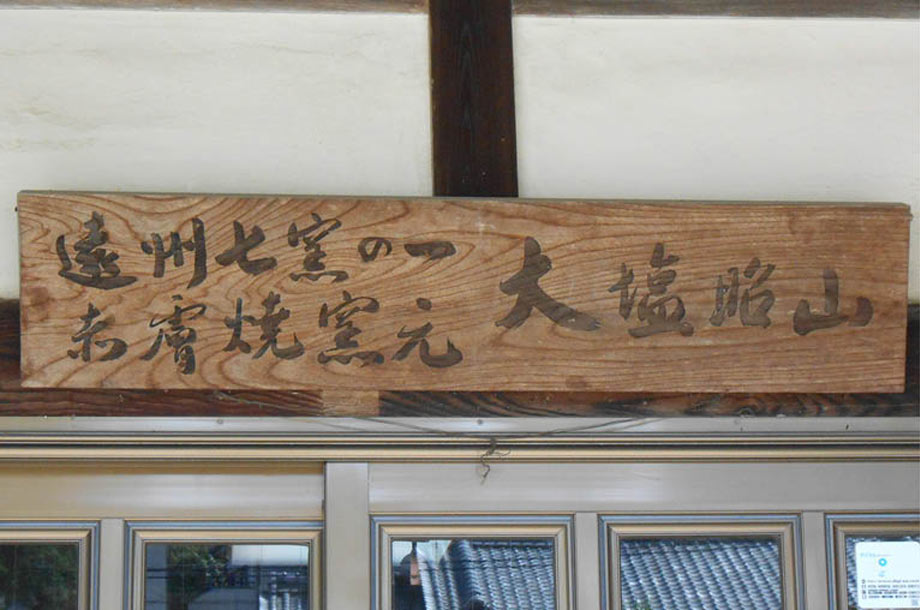 遠州七窯の一
赤膚焼窯元
大塩昭山